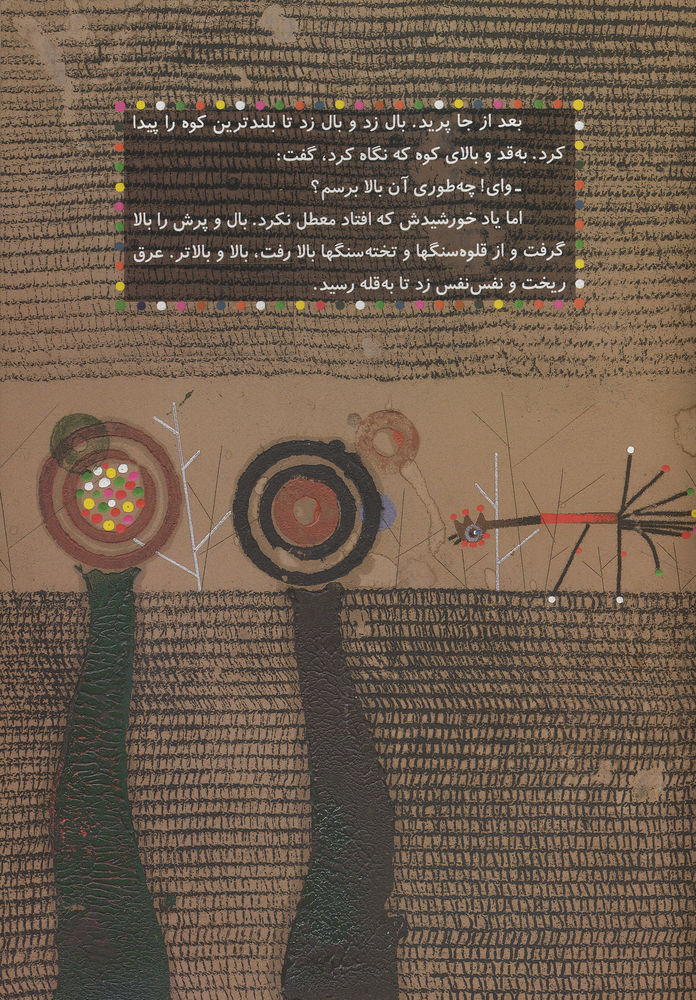 بعد از جا پرید. بال زد و بال زد تا بلندترین کوه را پیدا
کرد. به‌قد و بالای کوه که نگاه کرد، گفت:
ـ وای! چه‌طوری آن بالا برسم؟
اما یاد خورشیدش که افتاد معطل نکرد. بال و پرش را بالا
گرفت و از قلوه‌سنگها و تخته‌سنگها بالا رفت، بالا و بالاتر. عرق
ریخت و نفس‌نفس زد تا به‌قله رسید.